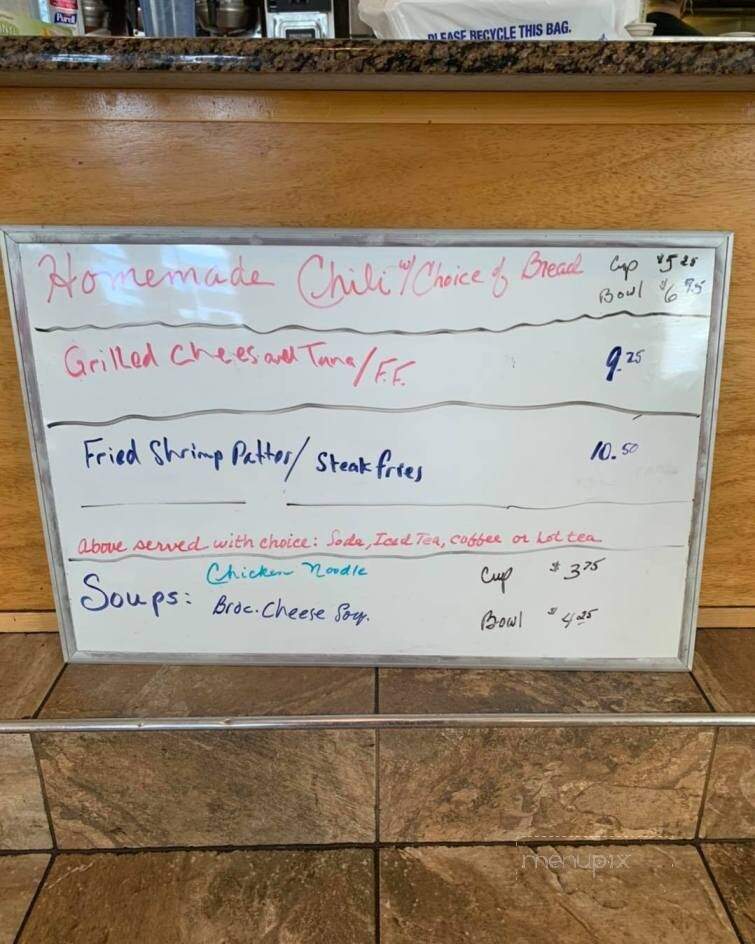 Purell
PLEASE RECYCLE THIS BAG.
Homemade Chili w/ Choice of Bread Cup $5.25
Bowl $6.75
Grilled Chees and Tuna/F.F. 9.25
Fried Shrimp Patter/Steak fries 10.50
above served with choice: Soda, Iced Tea, coffee or hot tea
Chicken Noodle Cup $3.75
Soups: Broc. Cheese Soup. Bowl $4.25
menupix